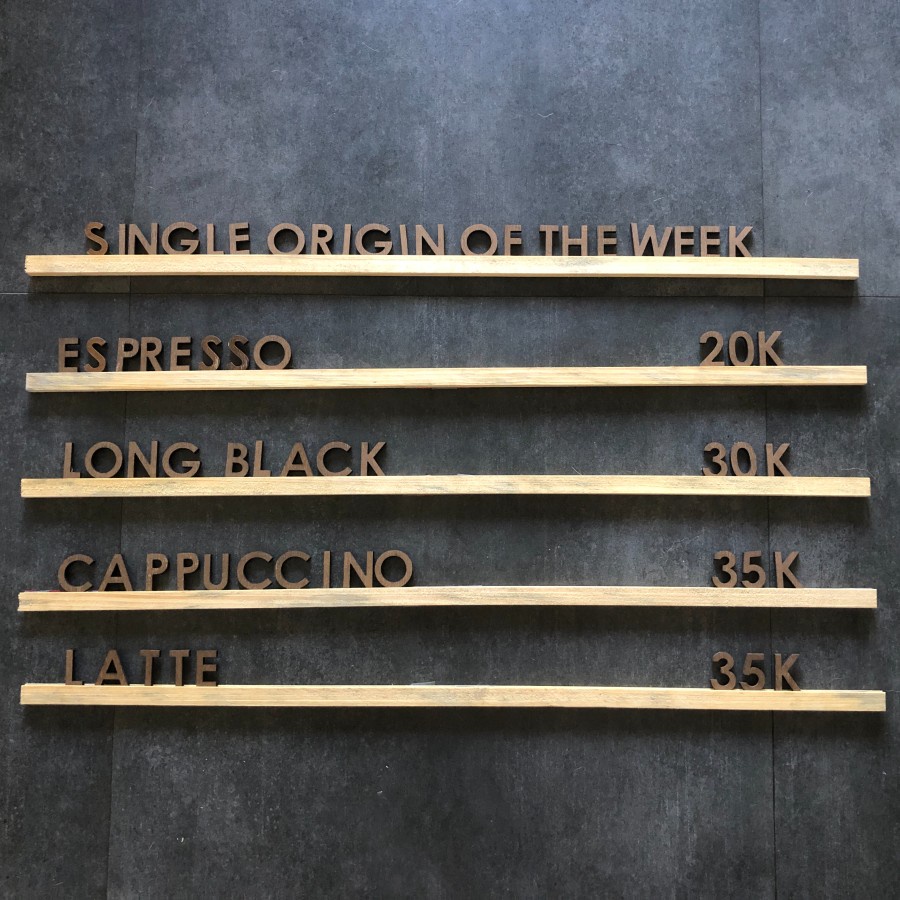 SINGLE ORIGIN OF THE WEEK
ESPRESSO 20K
LONG BLACK 30K
CAPPUCCINO 35K
LATTE 35K